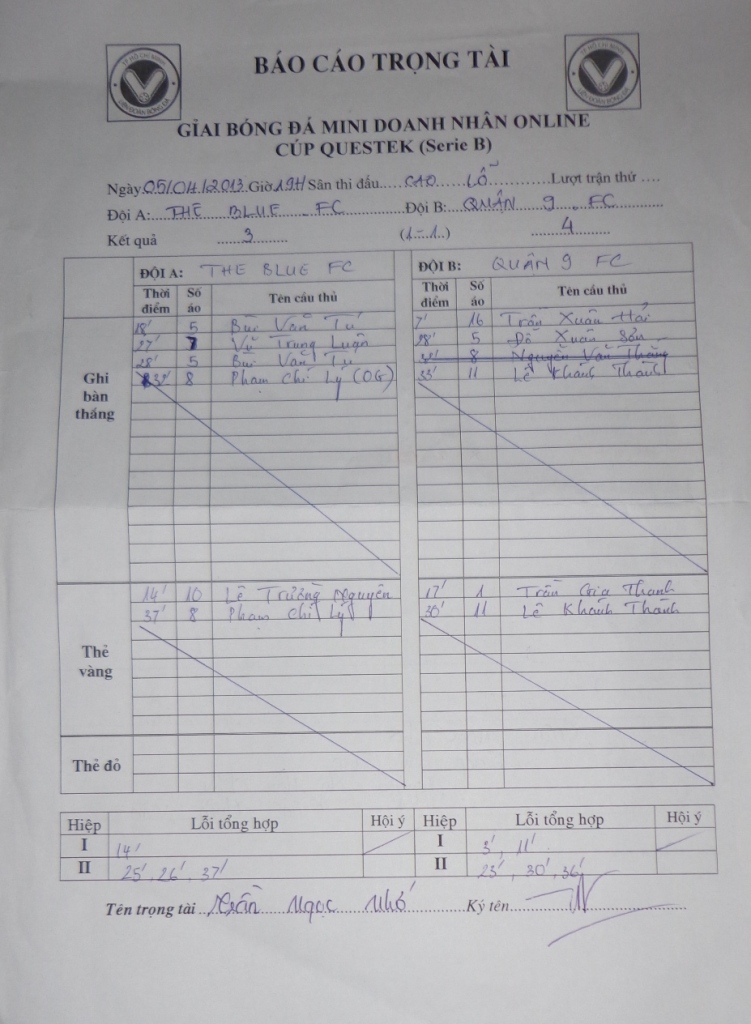 BÁO CÁO TRỌNG TÀI
GIẢI BÓNG ĐÁ MINI DOANH NHÂN ONLINE
CÚP QUESTEK (Serie B)
Ngày 05/04/2013 Giờ 19H Sân thi đấu CAO LỖ Lượt trận thứ ....
Đội A: THE BLUE FC Đội B: QUẬN 9 . FC
Kết quả 3 (1-1) 4
ĐỘI A: THE BLUE FC ĐỘI B: QUẬN 9 FC
Thời điểm Số áo Tên cầu thủ Thời điểm Số áo Tên cầu thủ
Ghi bàn thắng
18' 5 Bùi Văn Tú 7' 16 Trần Xuân Hải
27' 7 Vũ Trung Luận 28' 5 Đỗ Xuân
28' 5 Bùi Văn Tú 32' 8 Nguyễn Văn
32' 8 Phạm Chí Lý (OG) 33' 11 Lê Khánh Thành
Thẻ vàng
14' 10 Lê Trường Nguyên 17' 1 Trần Gia Thanh
37' 8 Phạm Chí Lý 30' 11 Lê Khánh Thành
Thẻ đỏ
Hiệp Lỗi tổng hợp Hội ý Hiệp Lỗi tổng hợp Hội ý
I 14' I 3', 11'
II 25', 26', 37' II 23', 30', 36'
Tên trọng tài Trần Ngọc Nhớ Ký tên